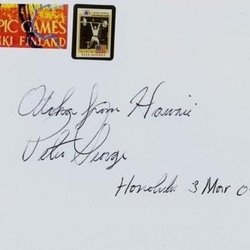 PIC GAMES
KI FINLAND
Aloha from Hawaii
Peter George
Honolulu 3 Mar 0